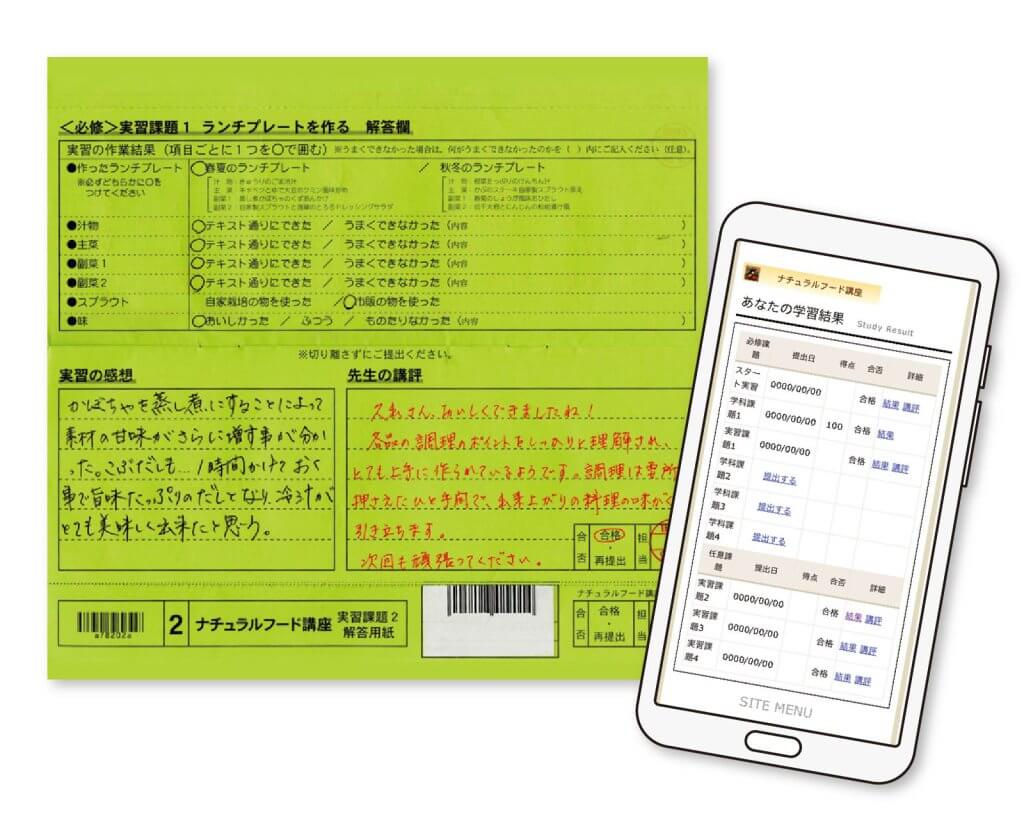 <必修>実習課題1 ランチプレートを作る 解答欄
実習の作業結果(項目ごとに1つを○で囲む) ※うまくできなかった場合は、何がうまくできなかったのかを( )内にご記入ください(任意)。
●作ったランチプレート 春夏のランチプレート / 秋冬のランチプレート
※必ずどちらかに○を
つけてください
●汁物 テキスト通りにできた / うまくできなかった(内容 )
●主菜 テキスト通りにできた / うまくできなかった(内容 )
●副菜1 テキスト通りにできた / うまくできなかった(内容 )
●副菜2 テキスト通りにできた / うまくできなかった(内容 )
●スプラウト 自家栽培の物を使った / 市販の物を使った
●味 おいしかった / ふつう / ものたりなかった(内容 )
※切り離さずにご提出ください。
実習の感想
かぼちゃを蒸し煮にすることによって
素材の甘味がさらに増す事が分か
った。こぶだしも…1時間かけておく
事で旨味たっぷりのだしとなり、冷汁が
とても美味しく出来たと思う。
先生の講評
さん、おいしくできましたね!
各品の調理のポイントをしっかりと理解され、
とても上手に作られているようです。調理は要所
押さえたひと手間で、出来上がりの料理の味が
引き立ちます。
次回も頑張ってください。
合否 合格・再提出 担当
a78202a
2 ナチュラルフード講座 実習課題2
解答用紙
ナチュラルフード講
合否 合格・再提出 担当
ナチュラルフード講座
あなたの学習結果 Study Result
必修課題 提出日 得点 合否 詳細
スタート実習 0000/00/00 合格 結果 講評
学科課題1 0000/00/00 100 合格 結果
実習課題1 0000/00/00 合格 結果 講評
学科課題2 提出する
学科課題3 提出する
学科課題4 提出する
任意課題 提出日 得点 合否 詳細
実習課題2 0000/00/00 合格 結果 講評
実習課題3 0000/00/00 合格 結果 講評
実習課題4 0000/00/00 合格 結果 講評
SITE MENU